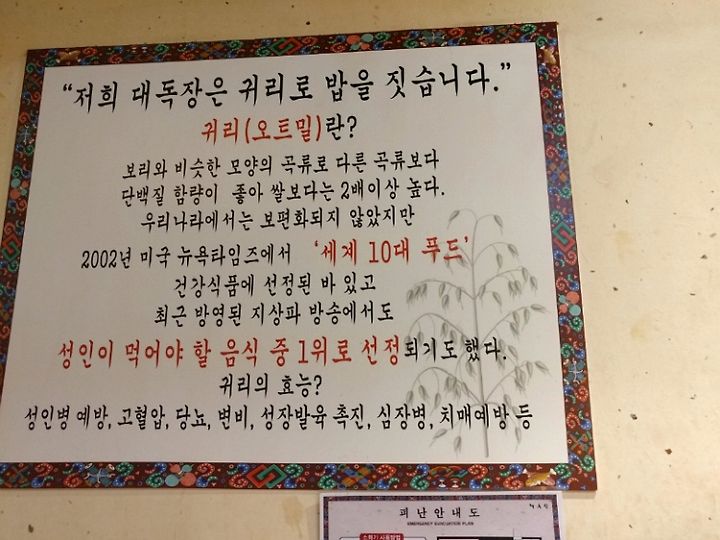 “저희 대독장은 귀리로 밥을 짓습니다.”
귀리(오트밀)란?
보리와 비슷한 모양의 곡류로 다른 곡류보다
단백질 함량이 좋아 쌀보다는 2배이상 높다.
우리나라에서는 보편화되지 않았지만
2002년 미국 뉴욕타임즈에서 ‘세계 10대 푸드’
건강식품에 선정된 바 있고
최근 방영된 지상파 방송에서도
성인이 먹어야 할 음식 중 1위로 선정되기도 했다.
귀리의 효능?
성인병 예방, 고혈압, 당뇨, 변비, 성장발육 촉진, 심장병, 치매예방 등
피난안내도
EMERGENCY EVACUATION PLAN
소화기 사용방법